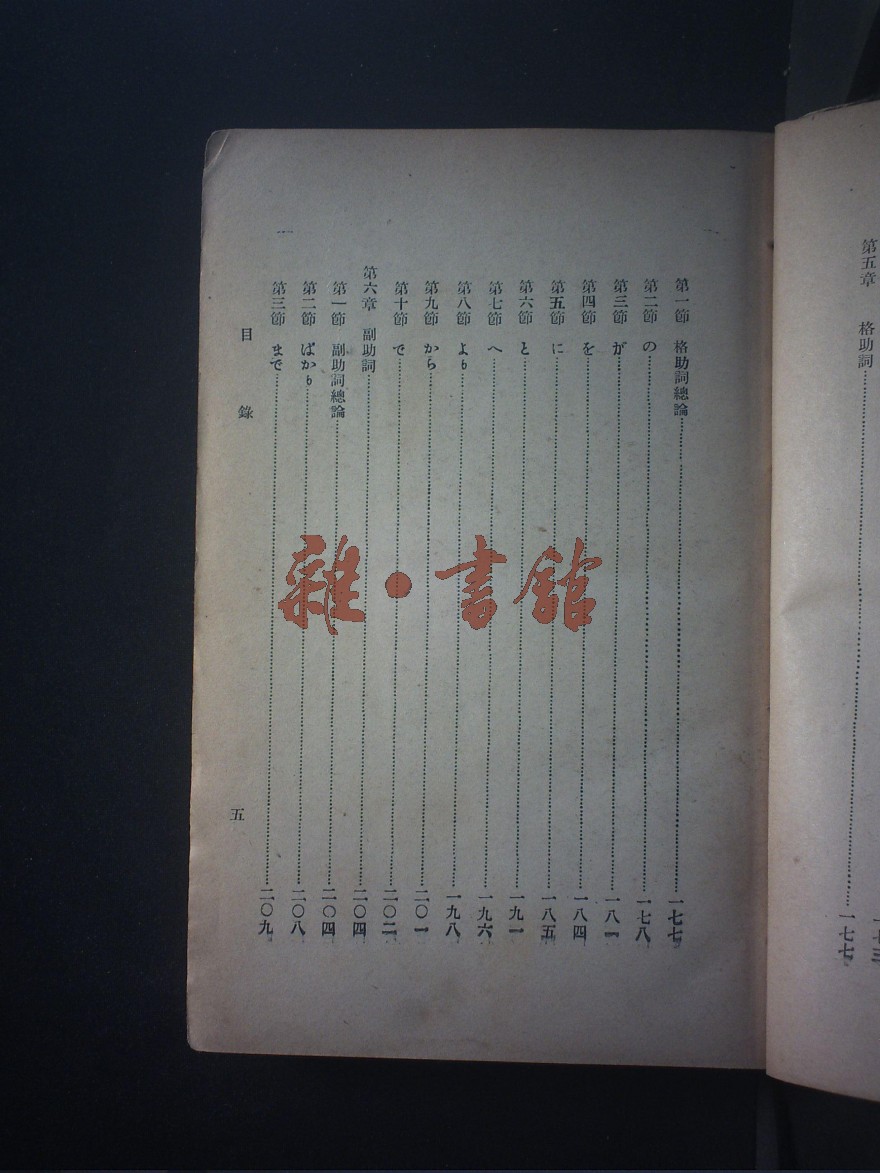 第五章 格助詞……一七七
第一節 格助詞總論……一七七
第二節 の……一七八
第三節 が……一八一
第四節 を……一八四
第五節 に……一八五
第六節 と……一九一
第七節 へ……一九六
第八節 より……一九八
第九節 から……二〇一
第十節 で……二〇二
第六章 副助詞……二〇四
第一節 副助詞總論……二〇四
第二節 ばかり……二〇八
第三節 まで……二〇九
目錄
五
雜·書館